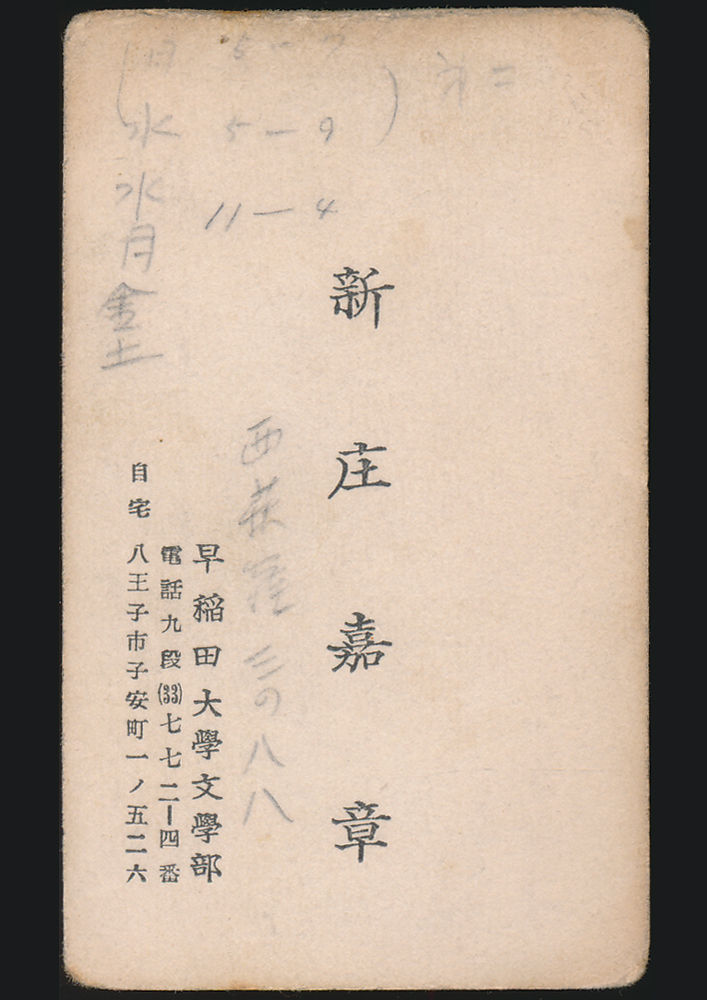 水 5―9
水 11―4
月
金
土
新庄嘉章
西荻窪 三の八八
早稲田大學文學部
電話九段(33)七七二一四番
自宅 八王子市子安町一ノ五二六